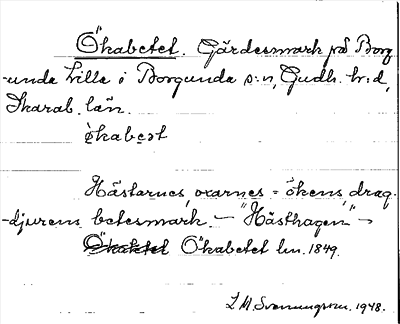 Ökabetet. Gärdesmark på Borg
-unda Lilla i Borgunda s:n, Gudh. h:d,
Skarab. län.
Hästarnes, oxarnes = ökens, drag
-djurens betesmark. - "Hästhagen" -
Ökabetet Ökabetet lm. 1849.
L M Svenungsson. 1948.